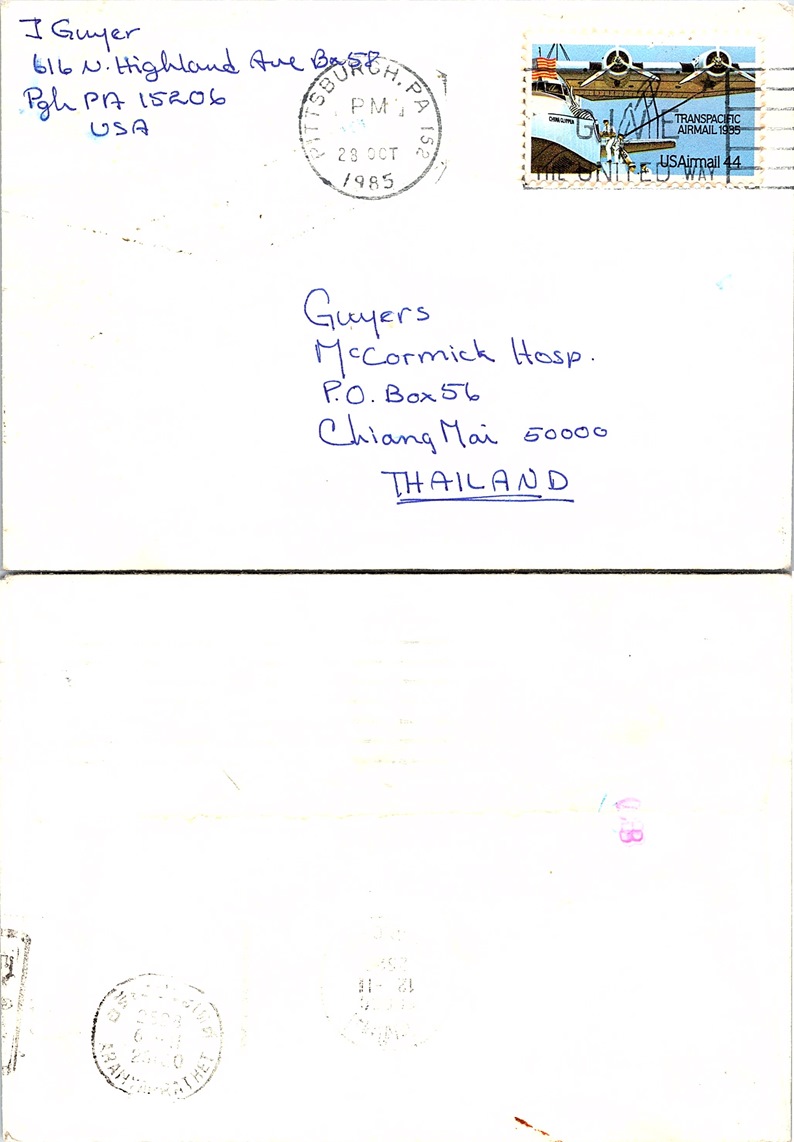 J Guyer
616 N. Highland Ave Box 58
Pgh PA 15206
USA
PITTSBURGH, PA 152
PM
28 OCT
1985
CHINA CLIPPER
TRANSPACIFIC
AIRMAIL 1935
USAirmail 44
GIVE
THE UNITED WAY
Guyers
McCormick Hosp.
P.O. Box 56
Chiang Mai 50000
THAILAND
2528